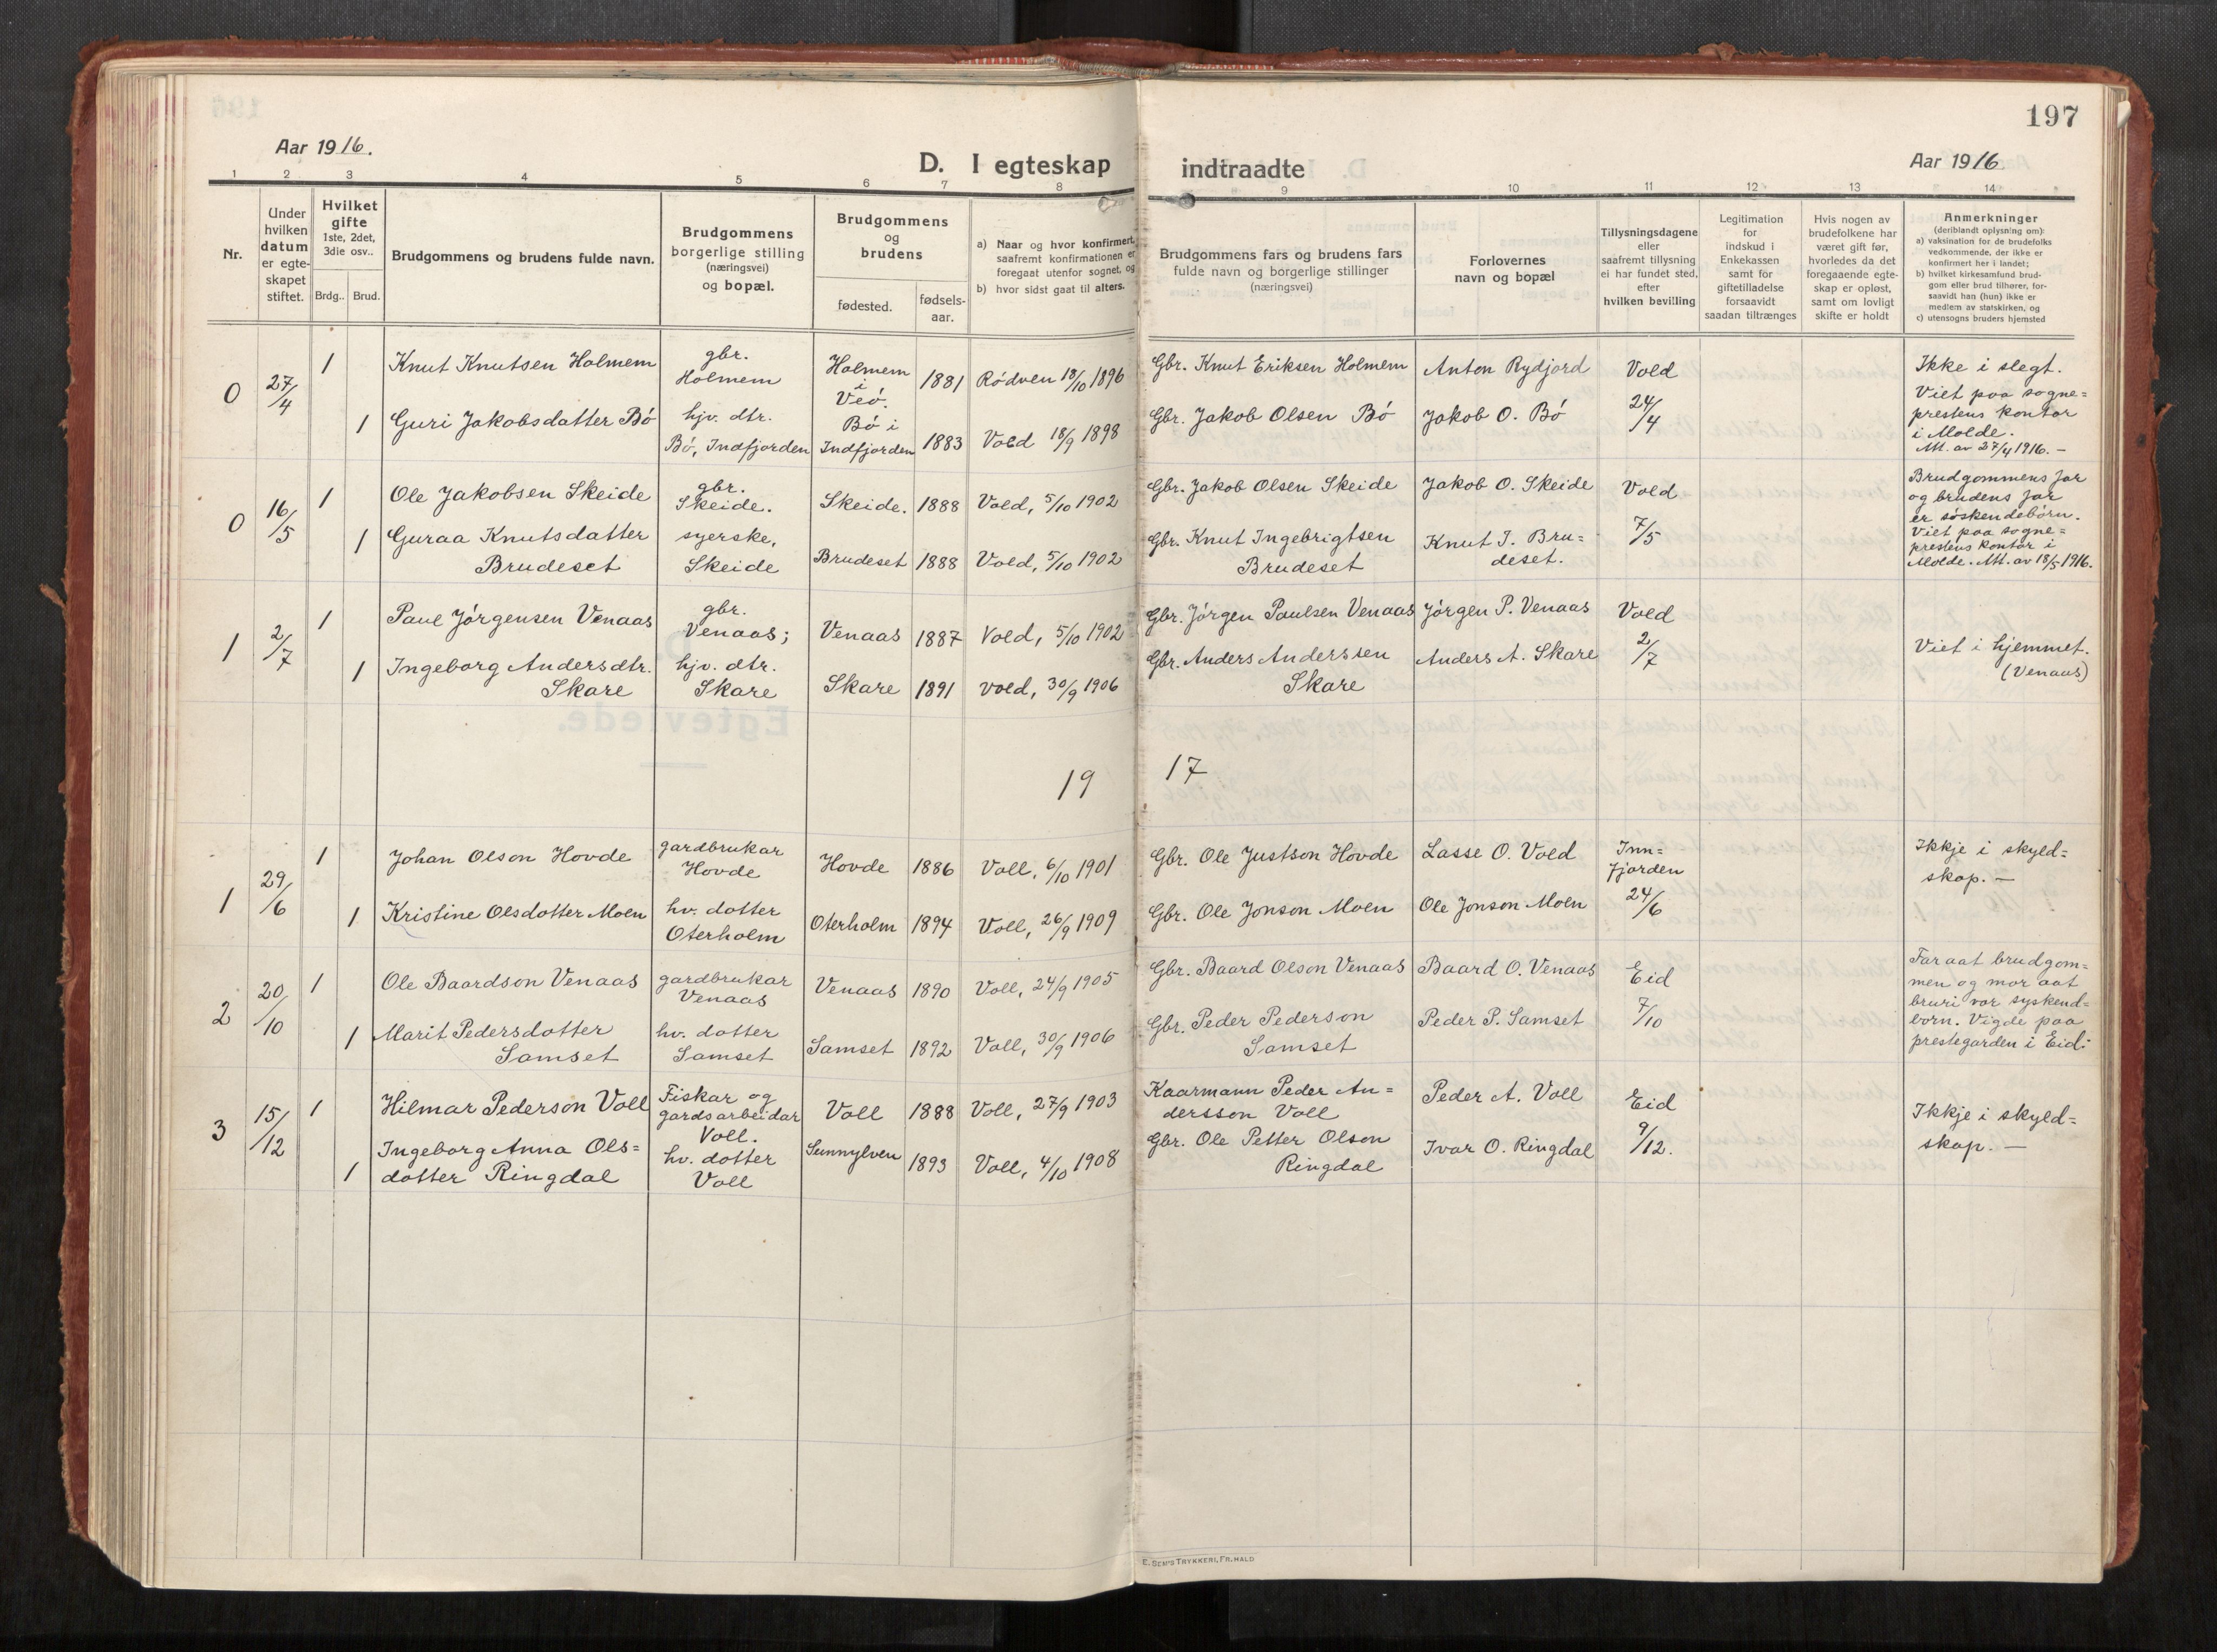 197
Aar 1916.
D. I egteskap indtraadte
Aar 1916
1 2 3 4 5 6 7 8 9 10 11 12 13 14
Nr.
Under
hvilken
datum
er egte-
skapet
stiftet.
Hvilket
gifte
1ste, 2det,
3die osv..
Brdg..
Brud.
Brudgommens og brudens fulde navn.
Brudgommens
borgerlige stilling
(næringsvei)
og bopæl.
Brudgommens
og
brudens
fødested.
fødsels-
aar.
a) Naar og hvor konfirmert,
saafremt konfirmationen er
foregaat utenfor sognet, og
b) hvor sidst gaat til alters.
Brudgommens fars og brudens fars
fulde navn og borgerlige stillinger
(næringsvei)
Forlovernes
navn og bopæl
Tillysningsdagene
eller
saafremt tillysning
ei har fundet sted,
efter
hvilken bevilling
Legitimation
for
indskud i
Enkekassen
samt for
giftetilladelse
forsaavidt
saadan tiltrænges
Hvis nogen av
brudefolkene har
været gift før,
hvorledes da det
foregaaende egte-
skap er opløst,
samt om lovligt
skifte er holdt
Anmerkninger
(deriblandt oplysning om):
a) vaksination for de brudefolks
vedkommende, der ikke er
konfirmert her i landet;
b) hvilket kirkesamfund brud-
gom eller brud tilhører, for-
saavidt han (hun) ikke er
medlem av statskirken, og
c) utensogns bruders hjemsted
0
27/4
1
Knut Knutsen Holmem
gbr.
Holmem
Holmem
i
Veø.
1881
Rødven 18/10 1896
Gbr. Knut Eriksen Holmem
Anton Rydjord
Vold
24/4
Ikke i slegt.
Viet paa sogne=
prestens kontor
i Molde.
Att. av 27/4 1916. -
1
Guri Jakobsdatter Bø
hjv. dtr.
Bø, Indfjorden
Bø i
Indfjorden
1883
Vold 18/9 1898
Gbr. Jakob Olsen Bø
Jakob O. Bø
0
16/5
1
Ole Jakobsen Skeide
gbr.
Skeide.
Skeide.
1888
Vold, 5/10 1902
Gbr. Jakob Olsen Skeide
Jakob O. Skeide
Vold
7/5
Brudgommens far
og brudens far
er søskendebørn.
Viet paa sogne=
prestens kontor i
Molde. Att. av 18/5 1916.
1
Guraa Knutsdatter
Brudeset
syerske,
Skeide
Brudeset
1888
Vold, 5/10 1902
Gbr. Knut Ingebrigtsen
Brudeset
Knut I. Bru=
deset.
1
2/7
1
Paul Jørgensen Venaas
gbr.
Venaas;
Venaas
1887
Vold, 5/10 1902
Gbr. Jørgen Paulsen Venaas
Jørgen P. Venaas
Vold
2/7
Viet i hjemmet.
(Venaas)
1
Ingeborg Andersdtr.
Skare
hjv. dtr.
Skare
Skare
1891
Vold, 30/9 1906
Gbr. Anders Anderssen
Skare
Anders A. Skare
19 17
1
29/6
1
Johan Olson Hovde
gardbrukar
Hovde
Hovde
1886
Voll, 6/10 1901
Gbr. Ole Justson Hovde
Lasse O. Vold
Inn=
fjorden
24/6
Ikkje i skyld=
skap. —
1
Kristine Olsdotter Moen
hv. dotter
Oterholm
Oterholm
1894
Voll, 26/9 1909
Gbr. Ole Jonson Moen
Ole Jonson Moen
2
20/10
1
Ole Baardson Venaas
gardbrukar
Venaas
Venaas
1890
Voll, 24/9 1905
Gbr. Baard Olson Venaas
Baard O. Venaas
Eid
7/10
Far aat brudgom=
men og mor aat
bruri var syskend=
born. Vigde paa
prestegarden i Eid.
1
Marit Pedersdotter
Samset
hv. dotter
Samset
Samset
1892
Voll, 30/9 1906
Gbr. Peder Pederson
Samset
Peder P. Samset
3
15/12
1
Hilmar Pederson Voll
Fiskar og
gardsarbeidar
Voll.
Voll
1888
Voll, 27/9 1903
Kaarmann Peder An=
dersson Voll
Peder A. Voll
Eid
9/12.
Ikkje i skyld=
skap. —
1
Ingeborg Anna Ols=
dotter Ringdal
hv. dotter
Voll
Sunnylven
1893
Voll, 4/10 1908
Gbr. Ole Petter Olson
Ringdal
Ivar O. Ringdal
E. SEM'S TRYKKERI, FR.HALD